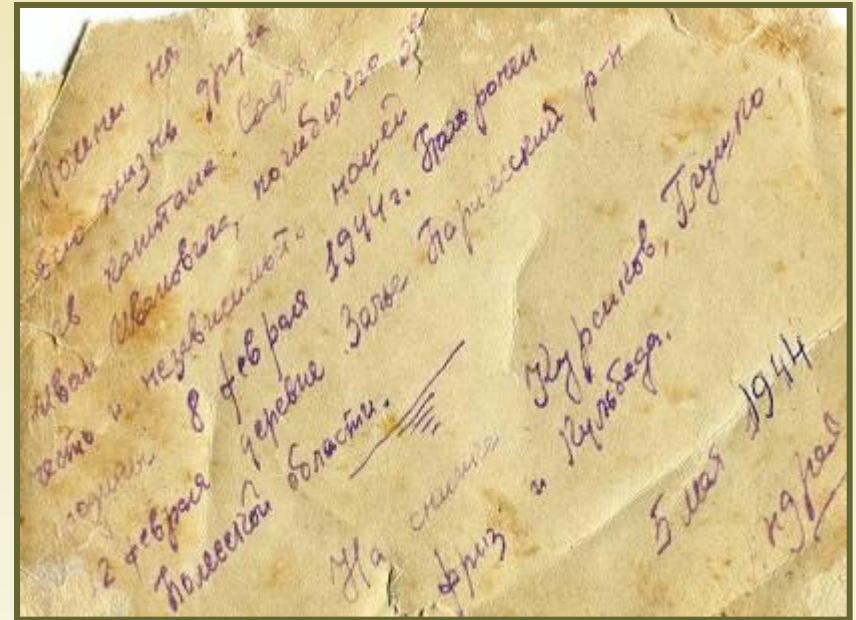 на
жизнь друга
капитана
Ивановича, погибшего за
честь и независимость нашей
родины 8 февраля 1944 г. Похоронен
февраля деревне Зачье Паричский р-н
Полесской области.
На снимке Курсиков, Глушко,
и Кульбеда.
5 мая 1944